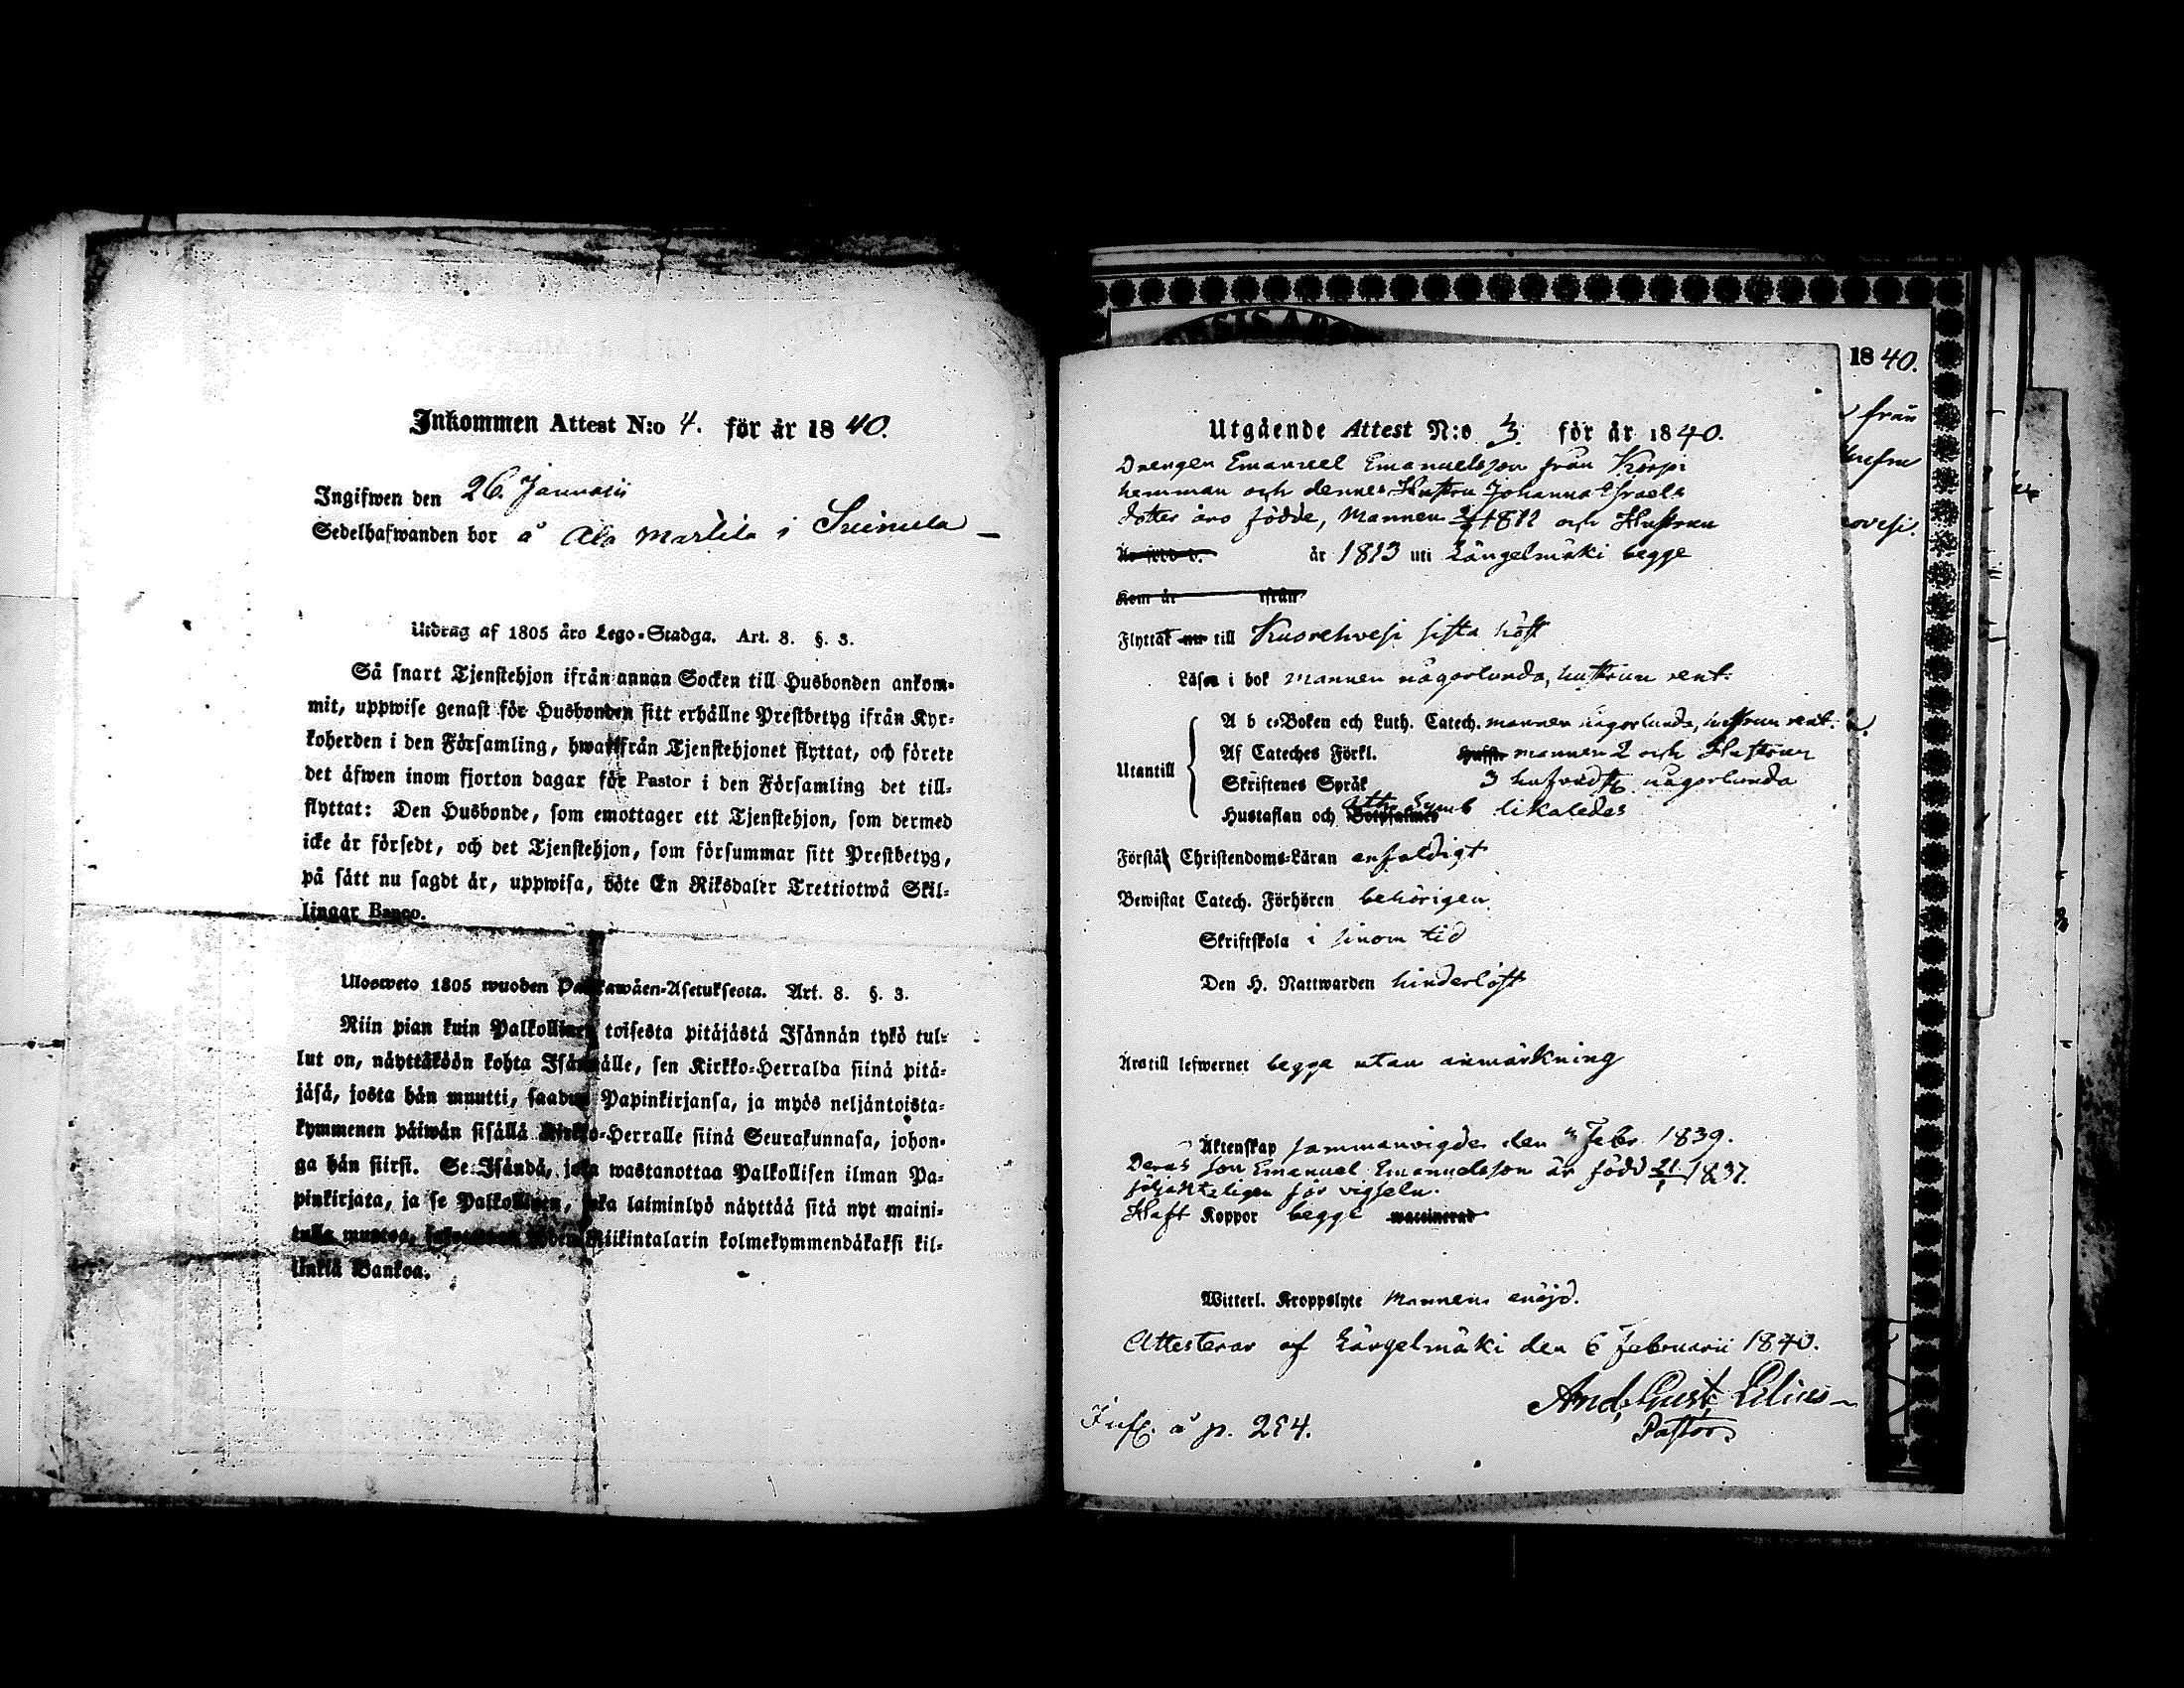 Inkommen Attest N:o 4. för år 1840.
Ingifwen den 26. Januarii
Sedelhafwanden bor å Ala Marttila i Suinula —
Utdrag af 1805 års Lego-Stadga. Art. 8. §. 3.
Så snart Tjenstehjon ifrån annan Socken till Husbonden ankom-
mit, uppwise genast för Husbonden sitt erhållne Prestbetyg ifrån Kyr-
koherden i den Församling, hwarifrån Tjenstehjonet flyttat, och förete
det äfwen inom fjorton dagar för Pastor i den Församling det till-
flyttat: Den Husbonde, som emottager ett Tjenstehjon, som dermed
icke är försedt, och det Tjenstehjon, som försummar sitt Prestbetyg,
på sätt nu sagdt är, uppwisa, böte En Riksdaler Trettiotwå Skil-
lingar Banco.
Ulosweto 1805 wuoden Palkkawäen-Asetuksesta. Art. 8. §. 3.
Niin pian kuin Palkollinen toisesta pitäjästä Isännän tykö tul-
lut on, näyttäköön kohta Isännälle, sen Kirkko-Herralda siinä pitä-
jäsä, josta hän muutti, saadun Papinkirjansa, ja myös neljäntoista-
kymmenen päiwän sisällä Kirkko-Herralle siinä Seurakunnasa, johon-
ga hän siirsi. Se Isändä, joka wastanottaa Palkollisen ilman Pa-
pinkirjata, ja se Palkollinen, joka laiminlyö näyttää sitä nyt maini-
tulla muotoa, Riikintalarin kolmekymmendäkaksi kil-
linkiä Bankoa.
Utgående Attest N:o 3. för år 1840.
Drengen Emanuel Emanuelsson från Korpi
hemman och dennes Hustru Johanna Israels
dotter äro födde, Mannen 1811 och Hustrun
Är född d. år 1813 uti Längelmäki begge
Kom år ifrån
Flyttat nu till Kuorehvesi sista höst
Läsa i bok mannen någorlunda, hustrun rent.
A b c-Boken och Luth. Catech. mannen någorlunda, hustrun rent.
Utantill
Af Cateches Förkl. mannen 2 och Hustrun
Skriftenes Språk 3 hufvudst. någorlunda
Hustaflan och Ath. Symb likaledes
Förstå Christendoms-Läran enfaldigt
Bewistat Catech. Förhören behörigen
Skriftskola i sinom tid
Den H. Nattwarden hinderlöst
Äro till lefwernet begge utan anmärkning
Äktenskap sammanvigde den Febr. 1839.
Deras son Emanuel Emanuelsson är född 21/1 1837.
följakteligen för vigseln.
Haft Koppor begge waccinerad
Witterl. Kroppslyte Mannen enöjd.
Attesterar af Längelmäki den 6 Februarii 1840.
And. Gust.
Pastor
Inf. å p. 254.
1840.
från